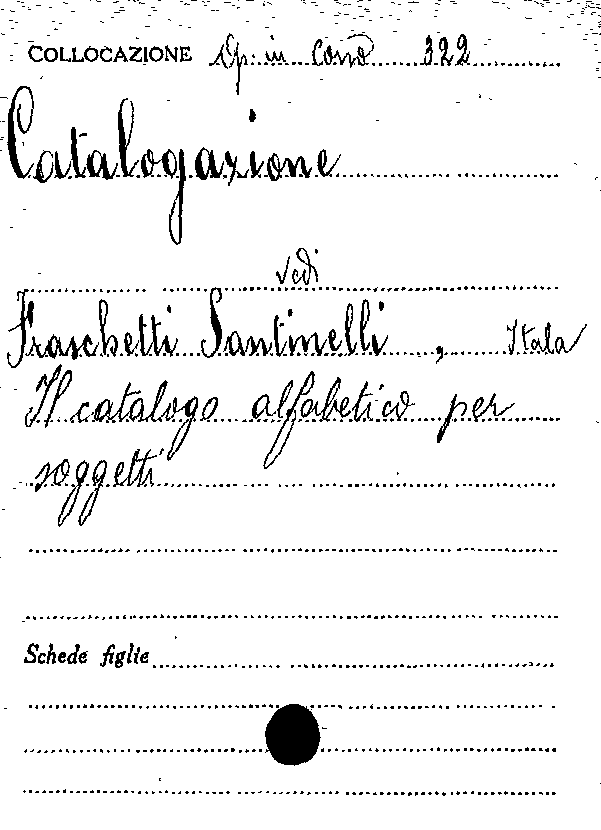 COLLOCAZIONE Op. in Corso 322
Catalogazione
vedi
Fraschetti Santinelli, Itala
Il catalogo alfabetico per
soggetti
Schede figlie